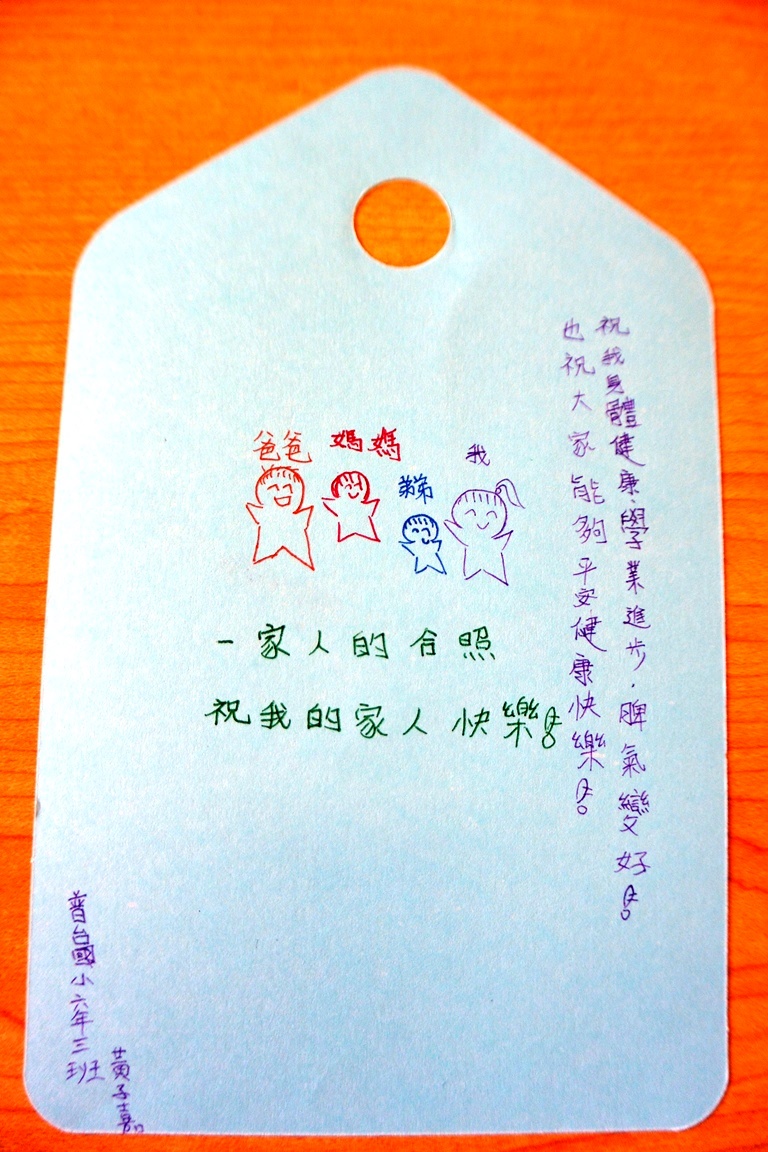 祝我身體健康.學業進步.脾氣變好!
也祝大家能夠平安健康快樂!
爸爸
媽媽
弟弟
我
一家人的合照
祝我的家人快樂!
普台國小六年三班
黃子嘉